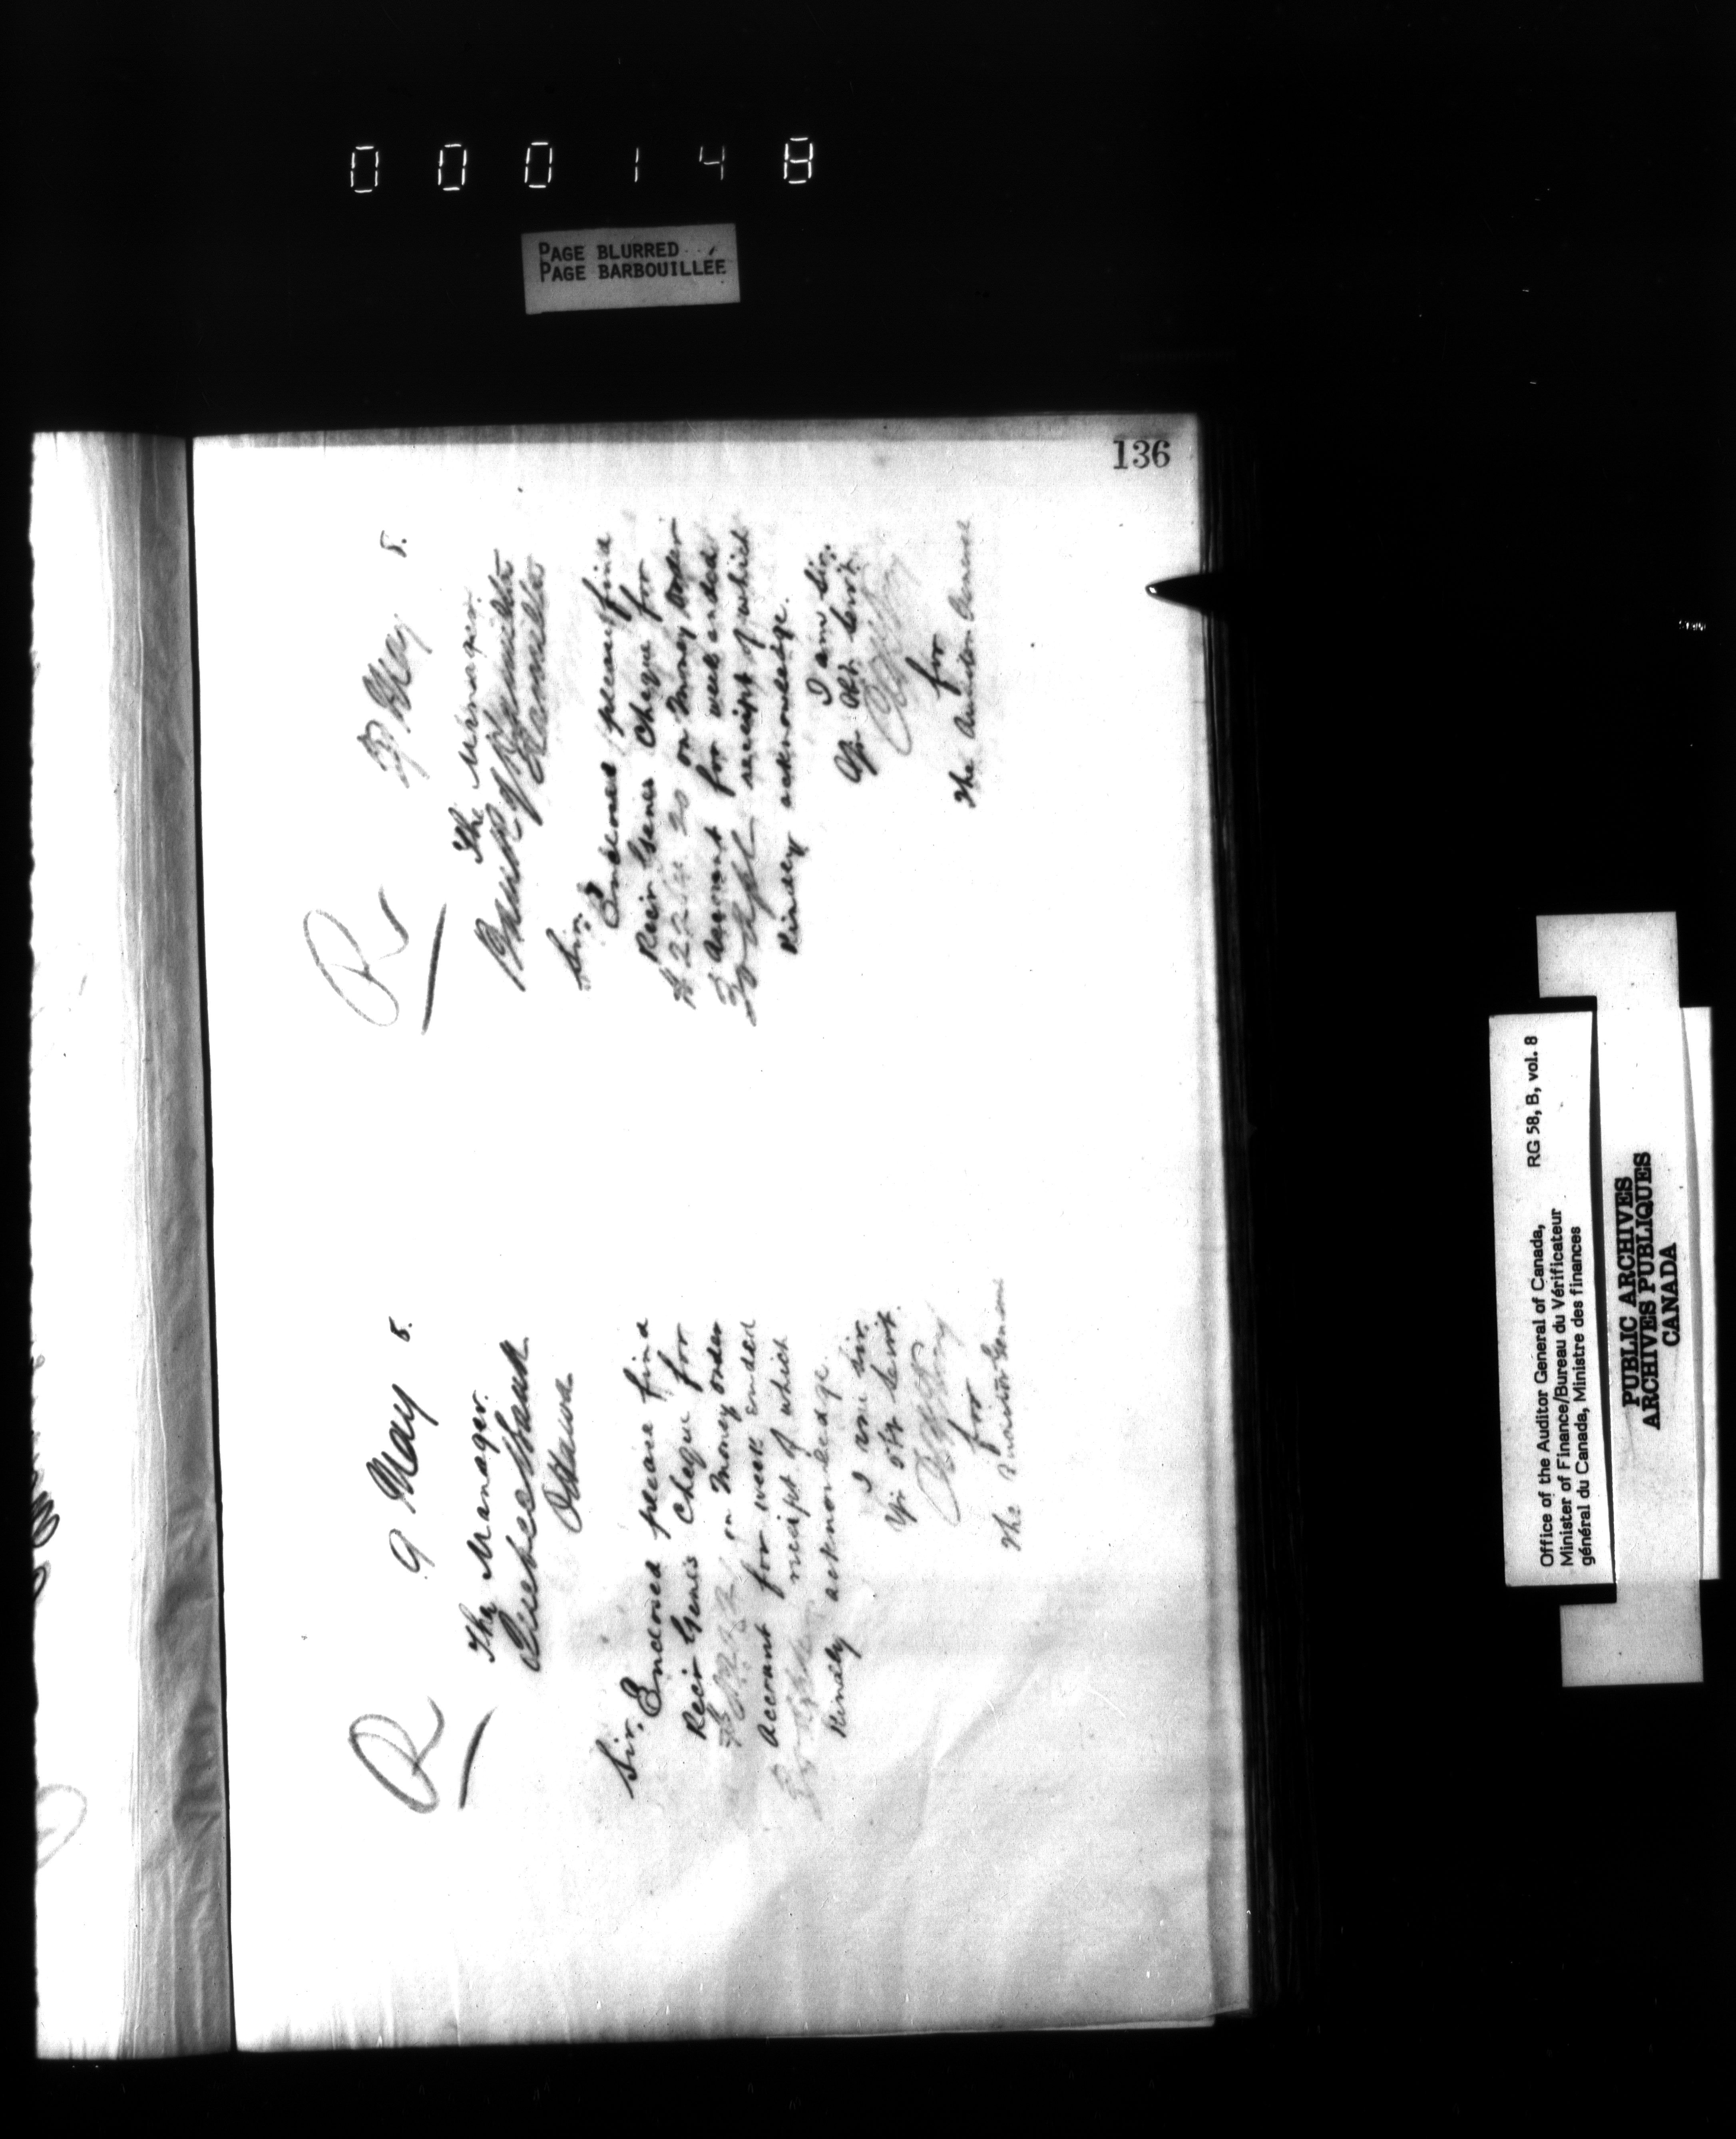 000148
PAGE BLURRED
PAGE BARBOUILLÉE
136
R
9 May 5.
The Manager.
Quebec Bank
Ottawa
Sir,
Enclosed please find
Recr Genls Cheque for
on Money order
Account for week ended
receipt of which
Kindly acknowledge.
I am Sir.
Yr obt servt.
for
The Auditor General
R
May 5.
The Manager.
Bank of Hamilton
Hamilton
Sir,
Enclosed please find
Recr Genls Cheque for
on Money order
Account for week ended
30 Apl receipt of which
Kindly acknowledge.
I am Sir.
Yr Obt servt.
for
The Auditor General
Office of the Auditor General of Canada,
Minister of Finance/Bureau du Vérificateur
général du Canada, Ministre des finances
RG 58, B, vol. 8
PUBLIC ARCHIVES
ARCHIVES PUBLIQUES
CANADA